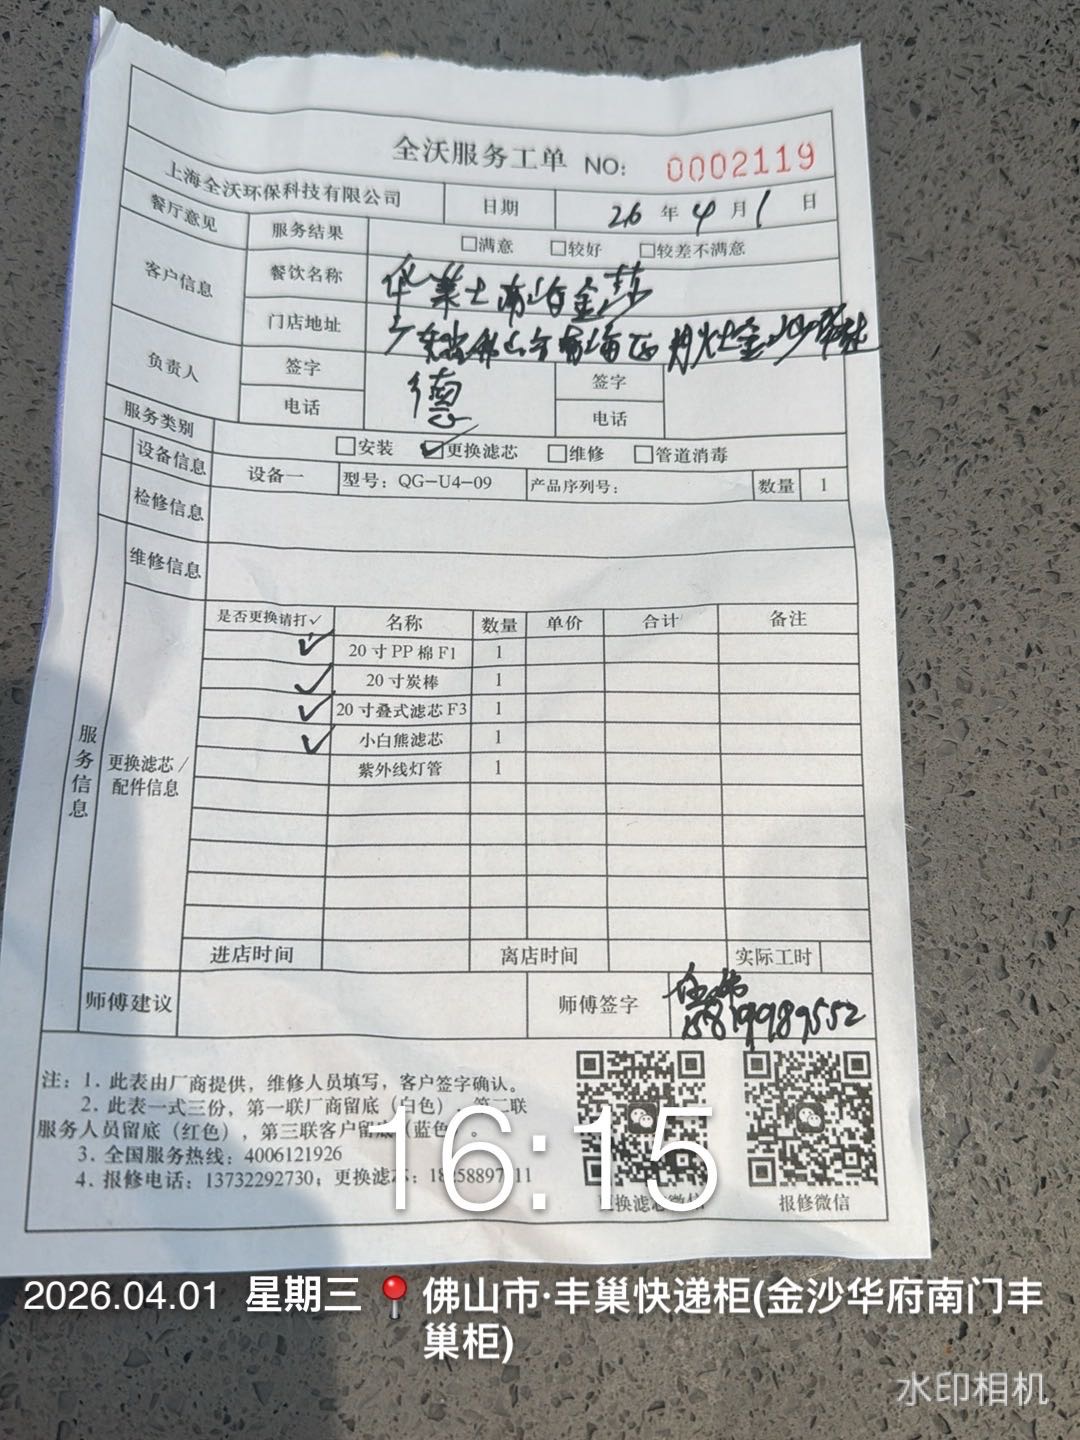 全沃服务工单 NO: 0002119
上海全沃环保科技有限公司 日期 26年4月1日
餐厅意见 服务结果 □满意 □较好 □较差不满意
客户信息 餐饮名称 华莱士南海金莎
门店地址 广东省佛山市南海区丹灶金沙
负责人 签字 德 签字
电话 电话
服务类别 □安装 ☑更换滤芯 □维修 □管道消毒
设备信息 设备一 型号：QG-U4-09 产品序列号： 数量 1
检修信息
维修信息
服务信息
更换滤芯/配件信息
是否更换请打✓ 名称 数量 单价 合计 备注
✓ 20寸PP棉F1 1
✓ 20寸炭棒 1
✓ 20寸叠式滤芯F3 1
✓ 小白熊滤芯 1
紫外线灯管 1
进店时间 离店时间 实际工时
师傅建议 师傅签字 15819989552
注：1. 此表由厂商提供，维修人员填写，客户签字确认。
2. 此表一式三份，第一联厂商留底（白色），第二联
服务人员留底（红色），第三联客户留底（蓝色）。
3. 全国服务热线：4006121926
4. 报修电话：13732292730；更换滤芯：
更换滤芯微信 报修微信
16:15
2026.04.01 星期三 佛山市·丰巢快递柜(金沙华府南门丰
巢柜)
水印相机